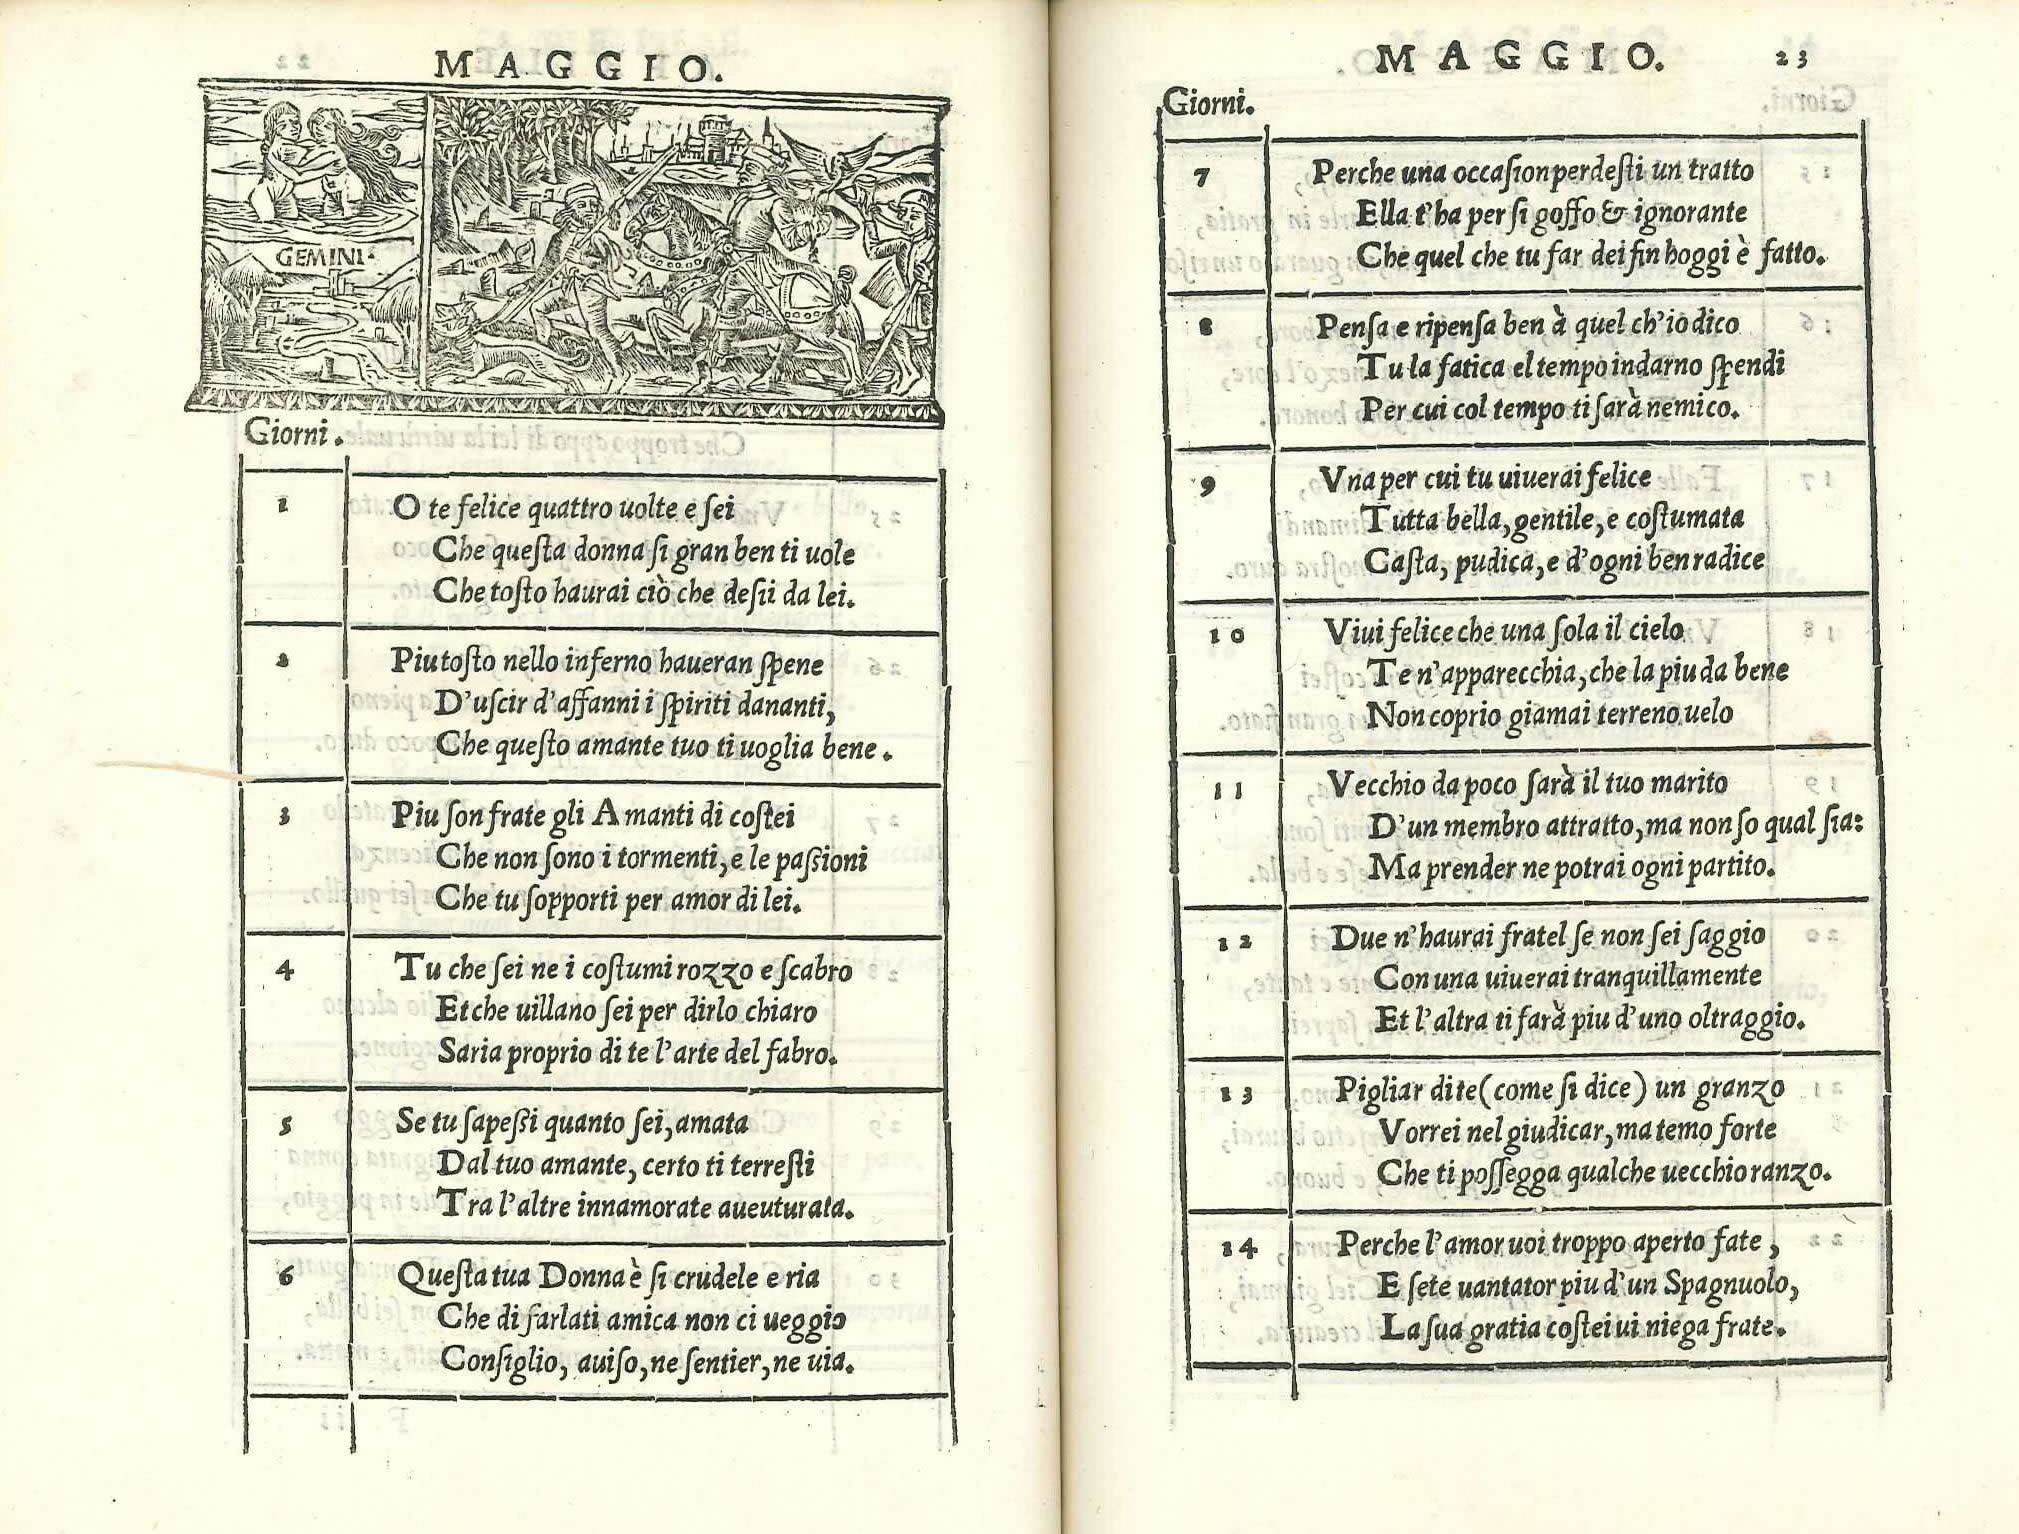 MAGGIO.
GEMINI.
Giorni.
1
O te felice quattro uolte e ſei
Che queſta donna ſi gran ben ti uole
Che toſto haurai ciò che deſii da lei.
2
Piu toſto nello inferno haueran ſpene
D'uſcir d'affanni i ſpiriti dananti,
Che queſto amante tuo ti uoglia bene.
3
Piu ſon frate gli Amanti di coſtei
Che non ſono i tormenti, e le paſsioni
Che tu ſopporti per amor di lei.
4
Tu che ſei ne i coſtumi rozzo e ſcabro
Et che uillano ſei per dirlo chiaro
Saria proprio di te l'arte del fabro.
5
Se tu ſapeſsi quanto ſei, amata
Dal tuo amante, certo ti terreſti
Tra l'altre innamorate aueuturata.
6
Queſta tua Donna è ſi crudele e ria
Che di farlati amica non ci ueggio
Conſiglio, auiſo, ne ſentier, ne uia.
MAGGIO. 23
Giorni.
7
Perche una occaſion perdeſti un tratto
Ella t'ha per ſi goffo & ignorante
Che quel che tu far dei fin hoggi è fatto.
8
Penſa e ripenſa ben à quel ch'io dico
Tu la fatica el tempo indarno ſpendi
Per cui col tempo ti ſarà nemico.
9
Vna per cui tu uiuerai felice
Tutta bella, gentile, e coſtumata
Caſta, pudica, e d'ogni ben radice
10
Viui felice che una ſola il cielo
Te n'apparecchia, che la piu da bene
Non coprio giamai terreno uelo
11
Vecchio da poco ſarà il tuo marito
D'un membro attratto, ma non ſo qual ſia:
Ma prender ne potrai ogni partito.
12
Due n'haurai fratel ſe non ſei ſaggio
Con una uiuerai tranquillamente
Et l'altra ti farà piu d'uno oltraggio.
13
Pigliar di te (come ſi dice) un granzo
Vorrei nel giudicar, ma temo forte
Che ti poſſegga qualche uecchio ranzo.
14
Perche l'amor uoi troppo aperto fate,
E ſete uantator piu d'un Spagnuolo,
La ſua gratia coſtei ui niega frate.